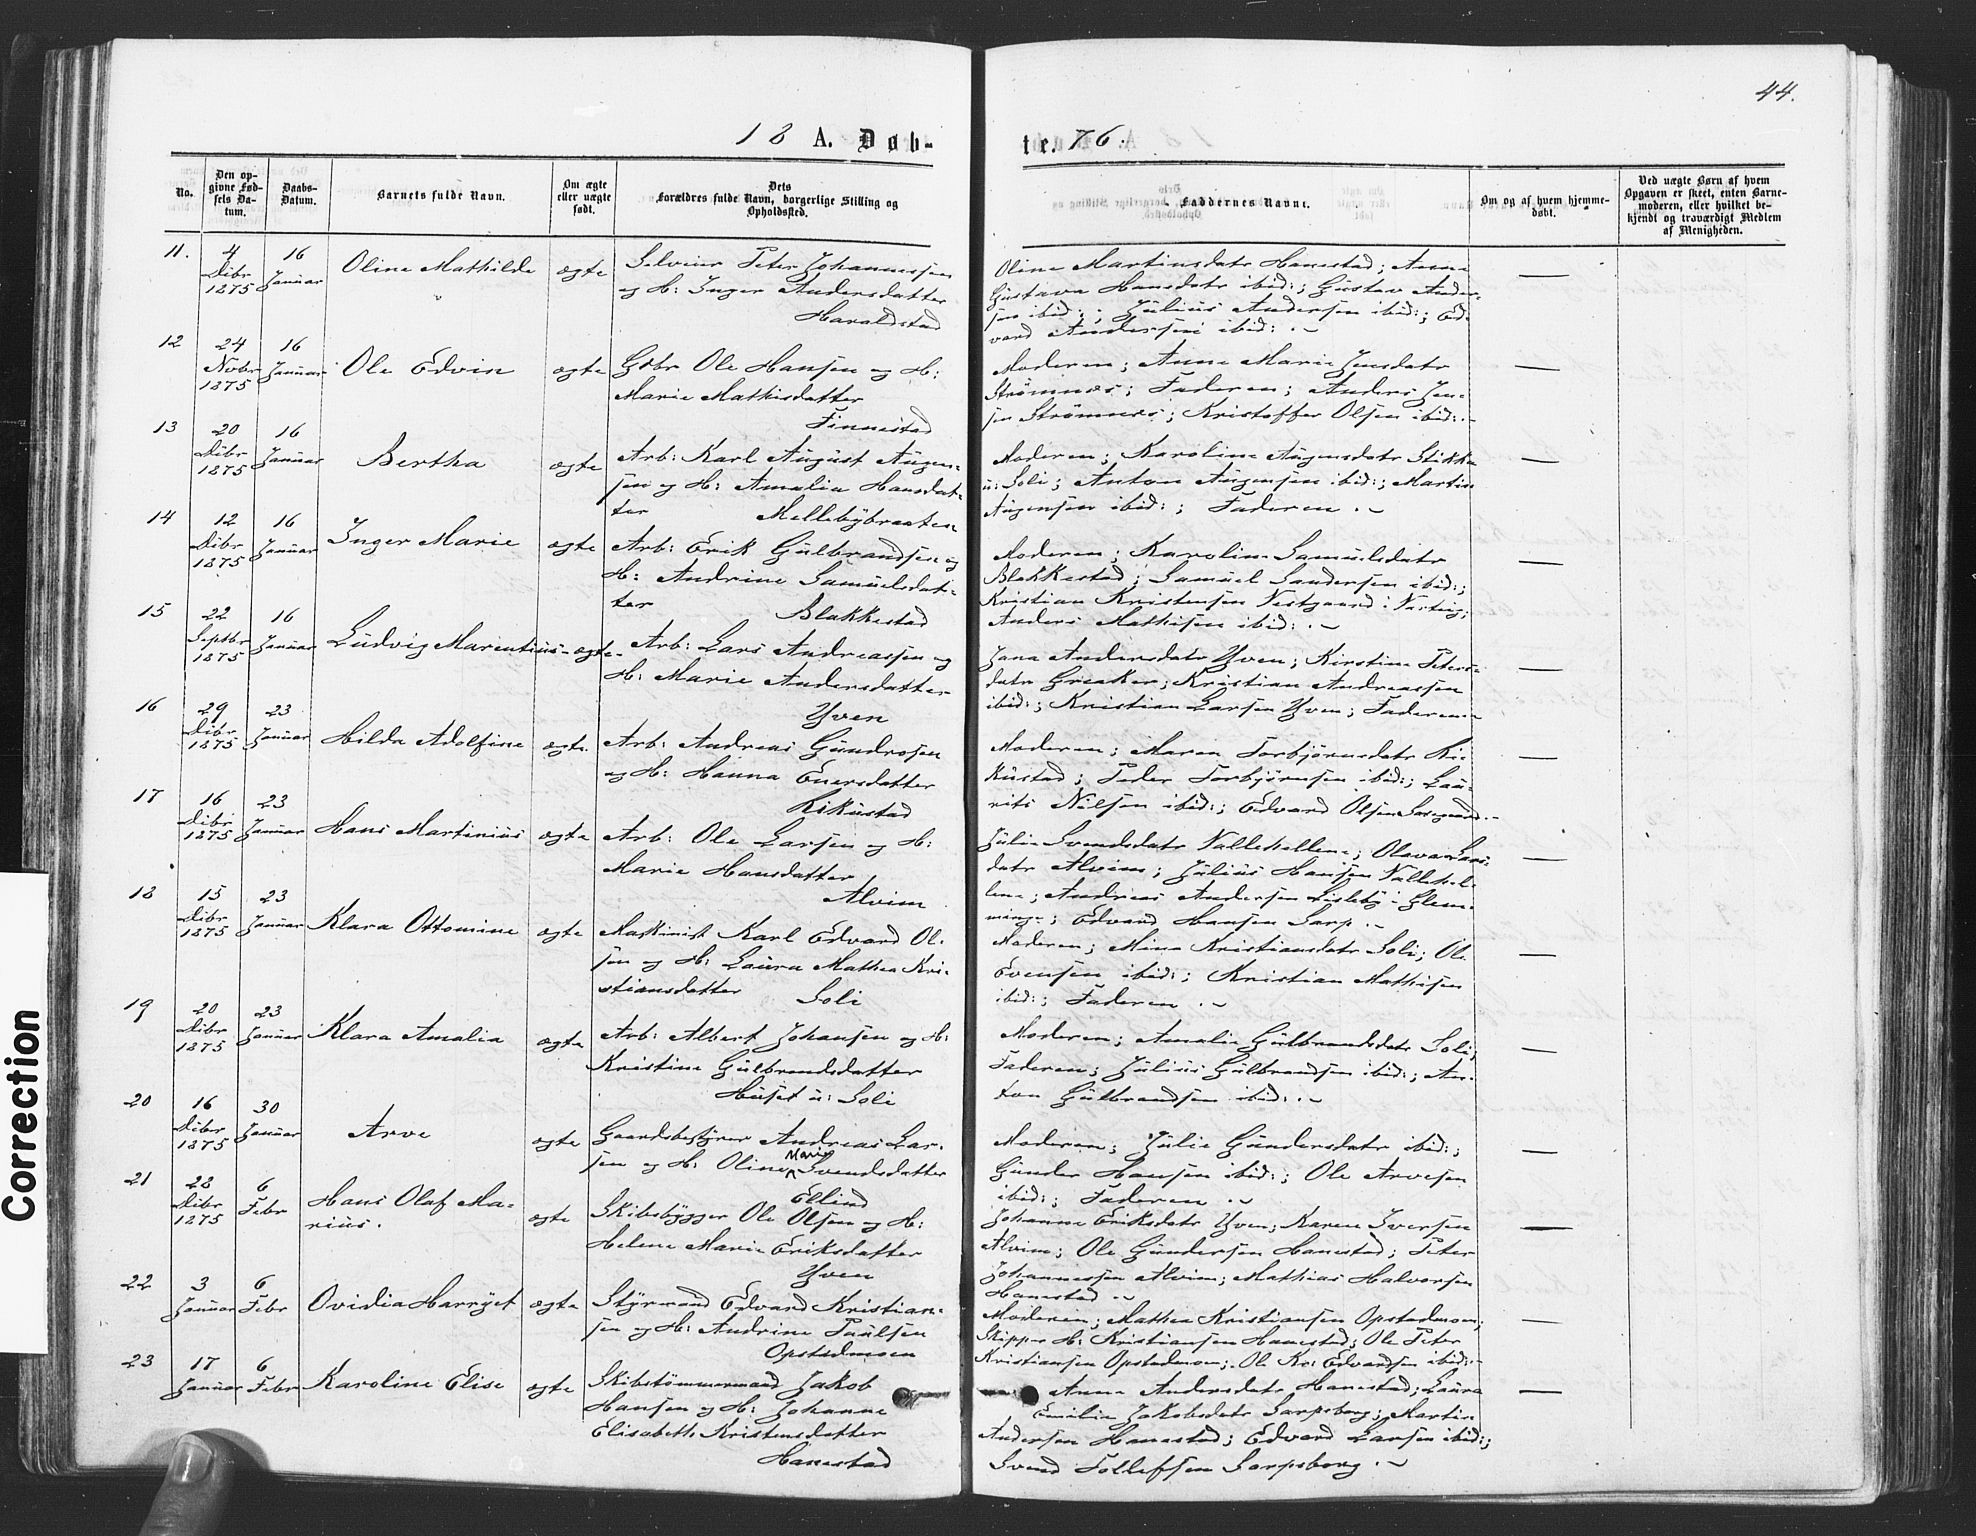 44.
18 A. Døb-
te. 76.
No.
Den op-
givne Fød-
sels Da-
tum.
Daabs-
Datum.
Barnets fulde Navn.
Om ægte
eller uægte
født.
Dets
Forældres fulde Navn, borgerlige Stilling og
Opholdssted.
Faddernes Navne.
Om og af hvem hjemme-
døbt.
Ved uægte Børn af hvem
Opgaven er skeet, enten Barne-
moderen, eller hvilket be-
kjendt og troværdigt Medlem
af Menigheden.
11.
4
Dibr
1875
16
Januar
Oline Mathilde
ægte
Selveier Peter Johannessen
og H: Inger Andersdatter
Haraldstad
Oline Martinsdatr Hanestad; Anne
Gustava Hansdatr ibid:; Gustav Ander-
sen ibid:; Julius Andersen ibid:; Ed-
vard Andersen ibid: .-
12
24
Novbr
1875
16
Januar
Ole Edvin
ægte
Gdbr Ole Hansen og H:
Marie Mathisdatter
Finnestad
Moderen; Anne Marie Jensdatr
Strømnes; Faderen; Anders Jen-
sen Strømnes; Kristoffer Olsen ibid: .-
13
20
Dibr
1875
16
Januar
Bertha
ægte
Arb: Karl August Augen-
sen og H: Amalia Hansdat-
ter Mellebybraaten
Moderen; Karoline Augensdatr Stikka
u: Soli; Anton Augensen ibid:; Martin
Augensen ibid:; Faderen .-
14
12
Dibr
1875
16
Januar
Inger Marie
ægte
Arb: Erik Gulbrandsen og
H: Andrine Samuelsdat-
ter Blakkestad
Moderen; Karoline Samuelsdatr
Blakkestad; Samuel Sandersen ibid:;
Kristian Kristensen Vestgaard i Varteig;
Anders Mathisen ibid: .-
15
22
Septbr
1875
16
Januar
Ludvig Marentius
ægte
Arb: Lars Andreassen og
H: Marie Andersdatter
Yven
Jana Andersdatr Yven; Kirstine Peters-
datr Greaker; Kristian Andreassen
ibid:; Kristian Larsen Yven; Faderen
16
29
Dibr
1875
23
Januar
Hilda Adolfine
ægte
Arb: Andreas Gundrosen
og H: Hanna Enersdatter
Kikustad
Moderen; Maren Torbjørnsdatr Ki-
kustad; Peder Torbjørnsen ibid:; Lau-
rits Nilsen ibid:; Edvard Olsen
17
16
Dibr
1875
23
Januar
Hans Martinius
ægte
Arb: Ole Larsen og H:
Marie Hansdatter
Alvim
Julie Svendsdatr Vallehellene; Olava Lars-
datr Alvim; Julius Hansen Vallehel-
lene; Andreas Andersen Lisleby i Glem-
minge; Edvard Hansen Sarp .-
18
15
Dibr
1875
23
Januar
Klara Ottomine
ægte
Maskinist Karl Edvard Ol-
sen og H: Laura Mathea Kri-
stiansdatter Soli
Moderen; Mina Kristiansdatr Soli; Ole
Evensen ibid:; Kristian Mathisen
ibid:; Faderen .-
19
20
Dibr
1875
23
Januar
Klara Amalia
ægte
Arb: Albert Johansen og H:
Kristine Gulbrandsdatter
Huset u: Soli
Moderen; Amalie Gulbrandsdatr Soli;
Faderen; Julius Gulbrandsen ibid:; An-
ton Gulbrandsen ibid: .-
20
16
Dibr
1875
30
Januar
Arve
ægte
Gaardsbestyrer Andreas Lar-
sen og H: Oline Marie Svendsdatter
Ellind
Moderen; Julie Gundersdatr ibid:;
Gunder Hansen ibid:; Ole Arvesen
ibid:; Faderen .-
21
28
Dibr
1875
6
Febr
Hans Olaf Ma-
rius.
ægte
Skibsbygger Ole Olsen og H:
Helene Marie Eriksdatter
Yven
Johanne Eriksdatr Yven; Karen Iversen
Alvim; Ole Gundersen Hanestad; Peter
Johannessen Alvim; Mathias Halvorsen
Hanestad .-
22
3
Januar
6
Febr
Ovidia Harryet
ægte
Styrmand Edvard Kristian-
sen og H: Andrine Paulsen
Opstadmoen
Moderen; Mathea Kristiansen Opstadmoen;
Skipper H: Kristiansen Hanestad; Ole Peter
Kristiansen Opstadmoen; Ole Kr: Edvardsen ibid: .-
23
17
Januar
6
Febr
Karoline Elise
ægte
Skibstømmermand Jakob
Hansen og H: Johanne
Elisabeth Kristensdatter
Hanestad
Anne Andersdatr Hanestad; Laura
Emilie Jakobsdatr Sarpsborg; Martin
Andersen Hanestad; Edvard Larsen ibid:;
Svend Tollefsen Sarpsborg .-
Correction